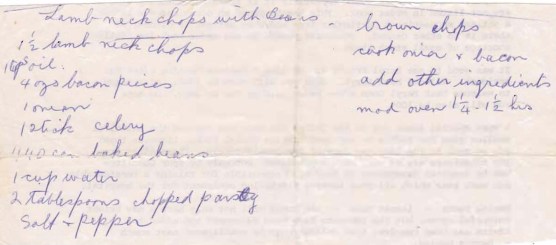 Lamb neck chops with Beans.
1½ lamb neck chops
1 tps oil.
4 ozs bacon pieces
1 onion
1 stick celery
440 can baked beans
1 cup water
2 tablespoons chopped parsley
Salt + pepper
brown chops
cook onion & bacon
add other ingredients
mod oven 1¼ - 1½ hrs